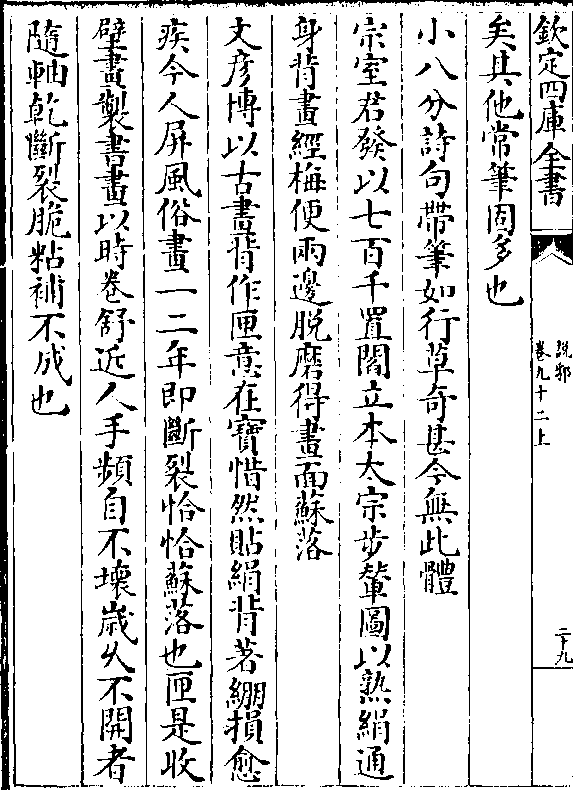 欽定四庫全書
說郛
卷九十二上
二十九
矣其他常筆固多也
小八分詩句帶筆如行草奇甚今無此體
宗室君發以七百千置閻立本太宗步輦圖以熟絹通
身背畫經梅便兩邊脫磨得畫面蘇落
文彥博以古畫背作匣意在寶惜然貼絹背著綳損愈
疾今人屏風俗畫一二年即斷裂恰恰蘇落也匣是收
壁畫製書畫以時卷舒近人手頻自不壞歲久不開者
隨軸乾斷裂脆粘補不成也